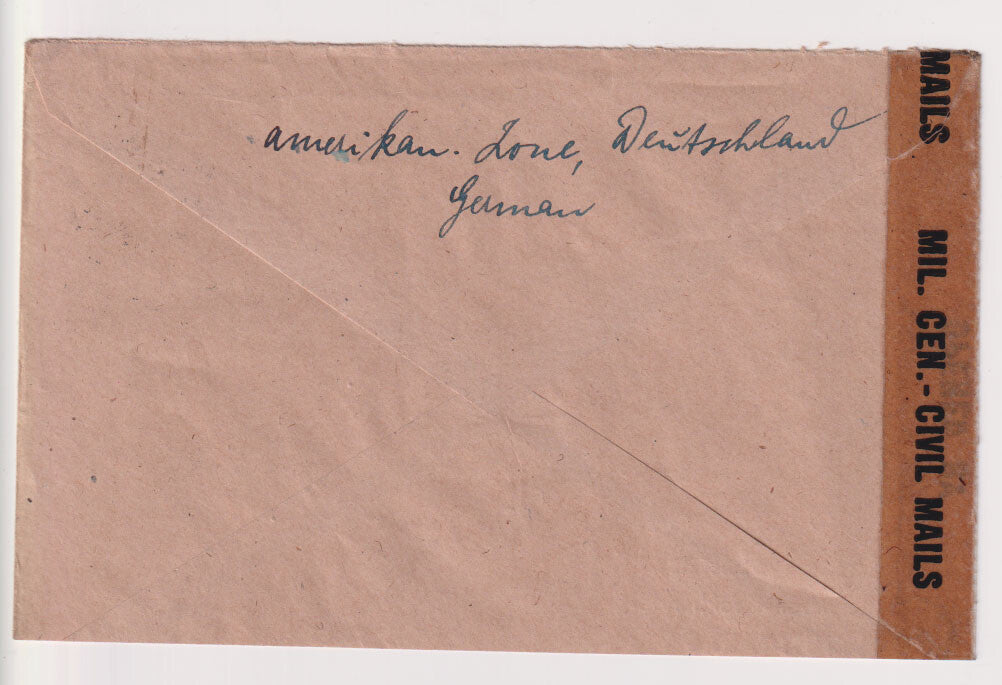 amerikan. Zone, Deutschland
German
MAILS
MIL. CEN.-CIVIL MAILS